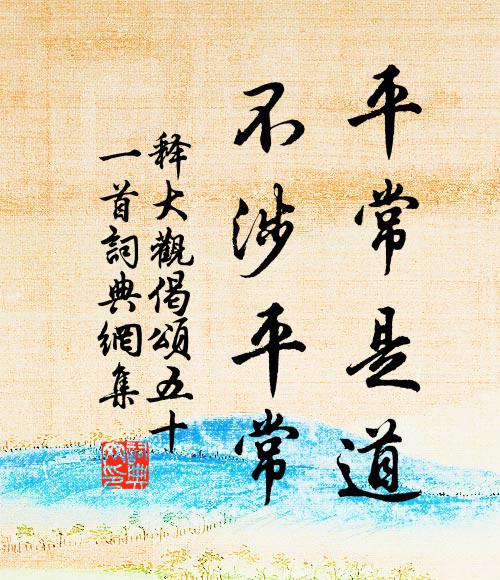 平常是道
不涉平常
释大觀偈頌五十
一首詞典網集